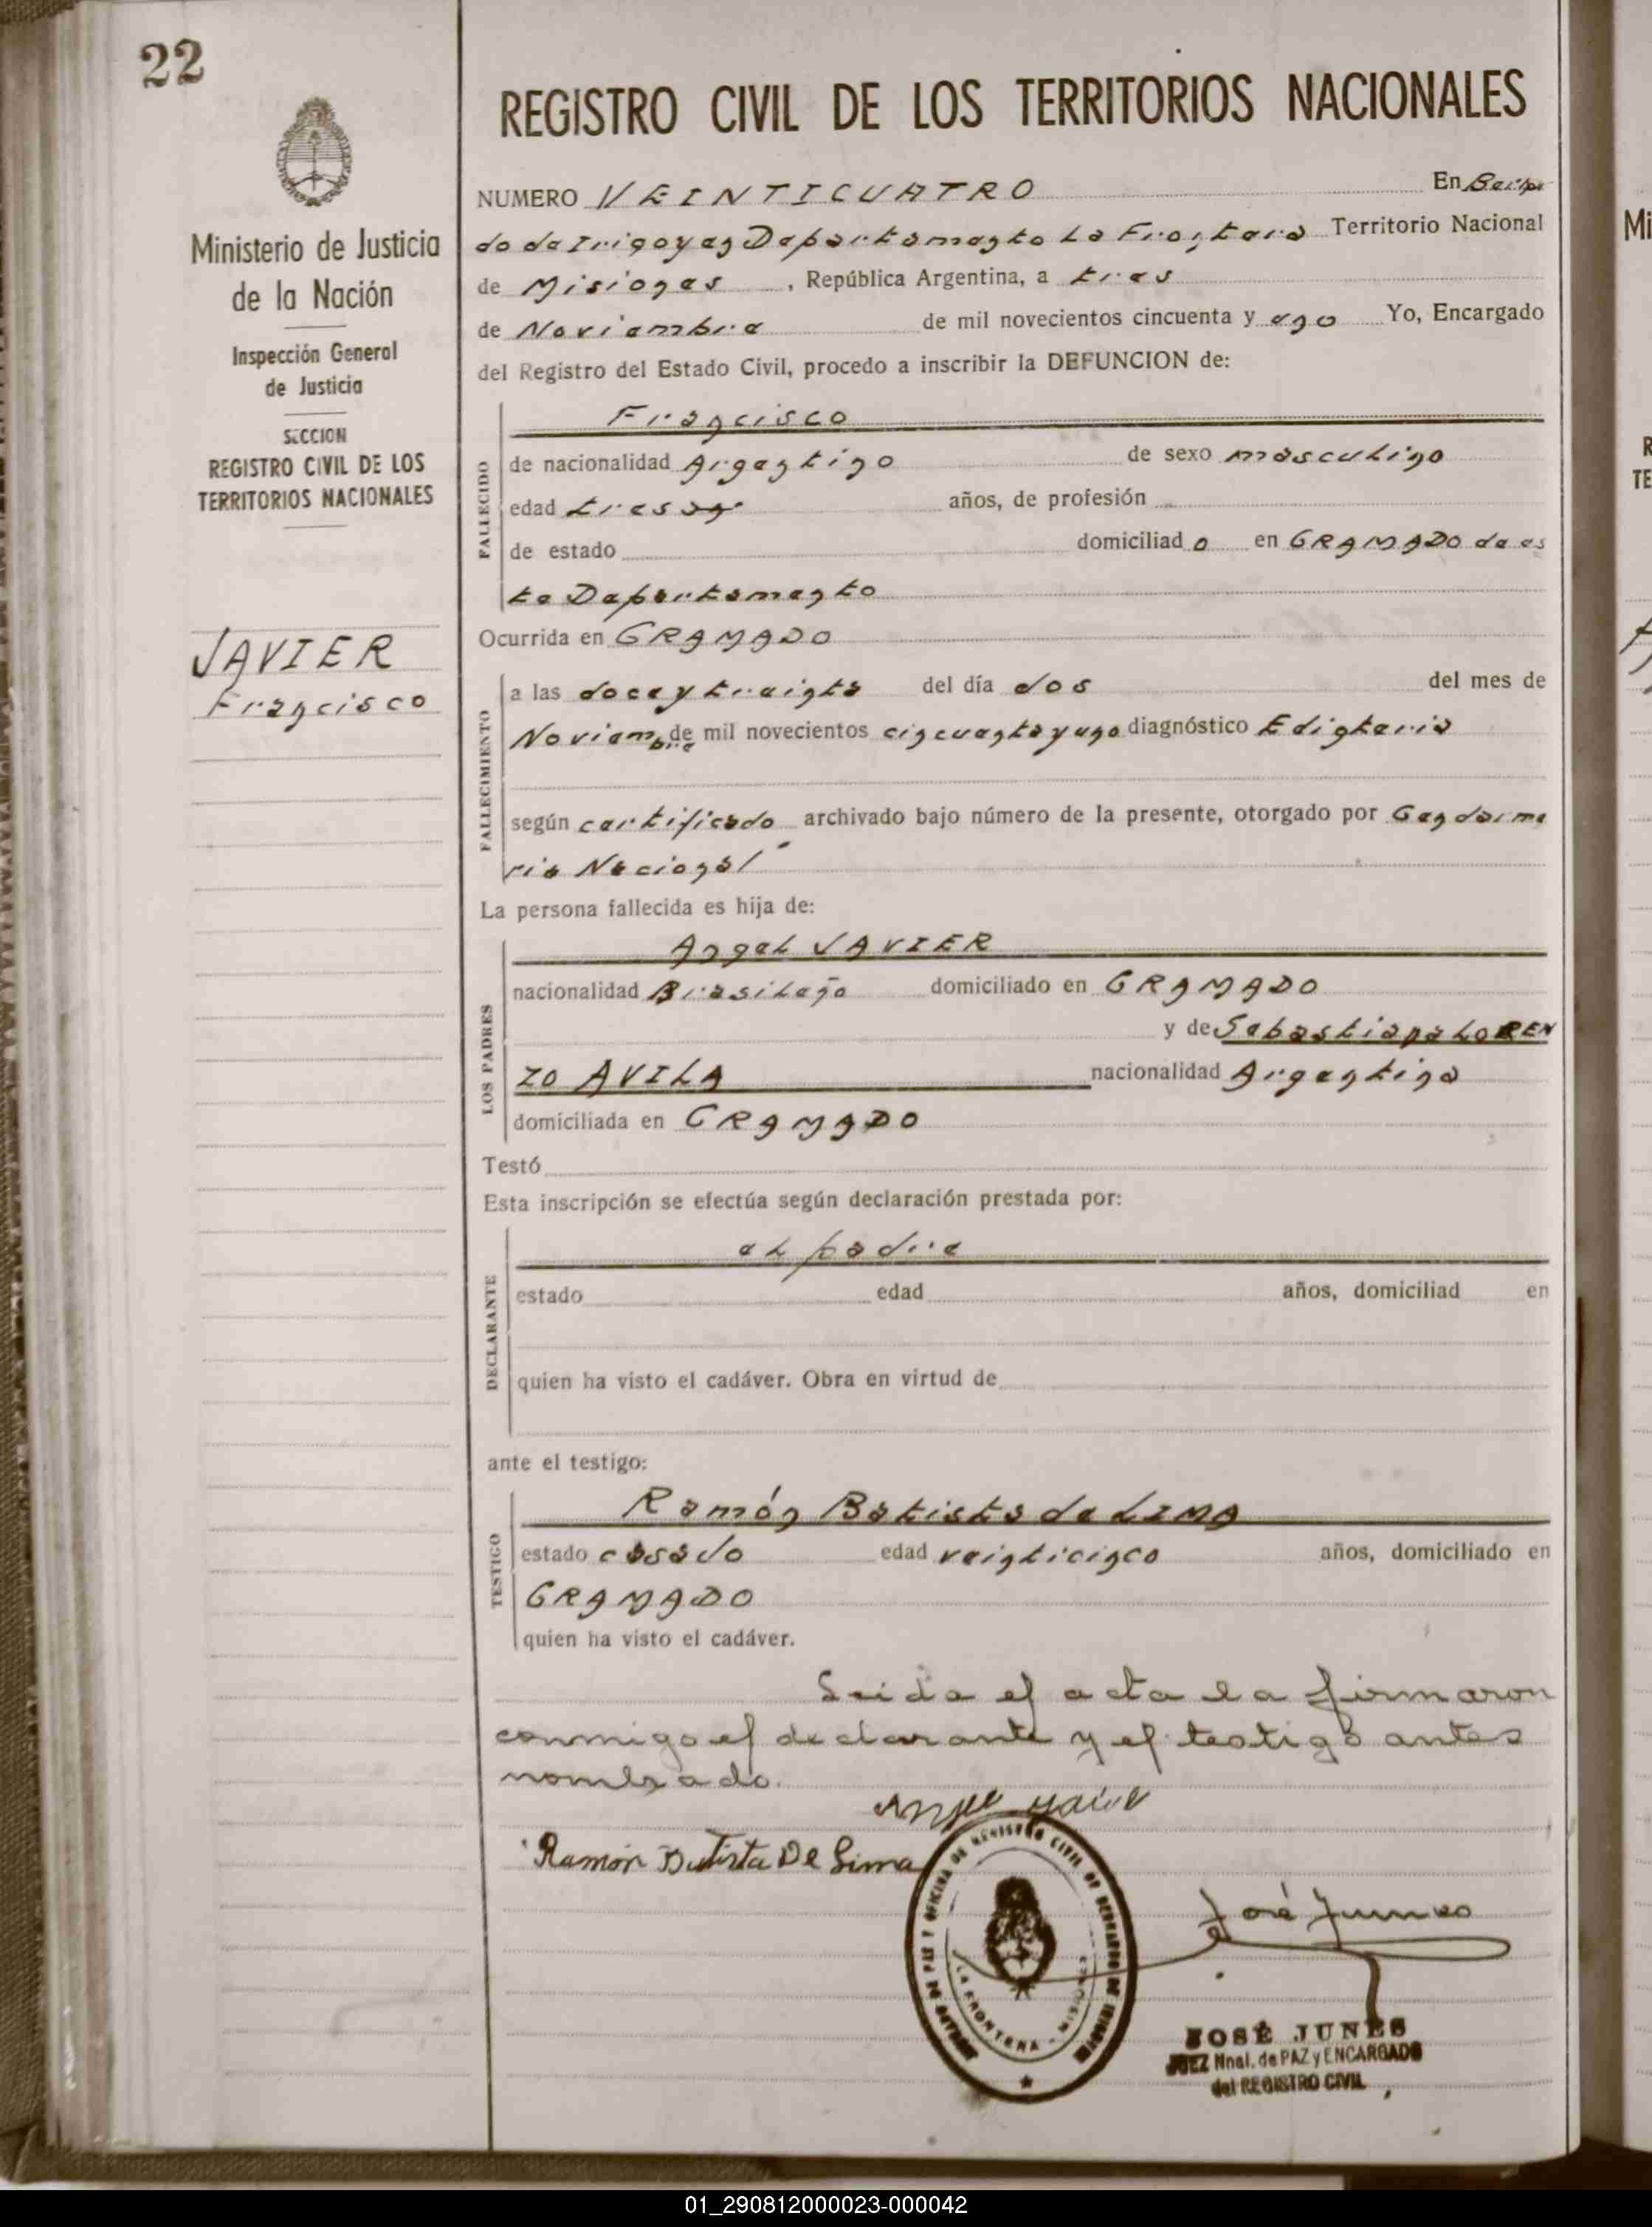 22
REGISTRO CIVIL DE LOS TERRITORIOS NACIONALES
Ministerio de Justicia
de la Nación
Inspección General
de Justicia
SECCION
REGISTRO CIVIL DE LOS
TERRITORIOS NACIONALES
JAVIER
Francisco
NUMERO VEINTICUATRO En Bernar
do de Irigoyen Departamento La Frontera Territorio Nacional
de Misiones, República Argentina, a tres
de Noviembre de mil novecientos cincuenta y uno Yo, Encargado
del Registro del Estado Civil, procedo a inscribir la DEFUNCION de:
FALLECIDO
Francisco
de nacionalidad Argentino de sexo masculino
edad tres años, de profesión
de estado domiciliado en GRAMADO de es
te Departamento
Ocurrida en GRAMADO
FALLECIMIENTO
a las doce y treinta del día dos del mes de
Noviembre de mil novecientos cincuenta y uno diagnóstico
según certificado archivado bajo número de la presente, otorgado por Gendarme
ria Nacional
La persona fallecida es hija de:
LOS PADRES
Angel JAVIER
nacionalidad Brasileño domiciliado en GRAMADO
y de Sebastiana LOREN
ZO AVILA nacionalidad Argentina
domiciliada en GRAMADO
Testó
Esta inscripción se efectúa según declaración prestada por:
DECLARANTE
el padre
estado edad años, domiciliad en
quien ha visto el cadáver. Obra en virtud de
ante el testigo:
TESTIGO
Ramón Batista de LIMA
estado casado edad veinticinco años, domiciliado en
GRAMADO
quien ha visto el cadáver.
Leida el acta la firmaron
conmigo el declarante y el testigo antes
nombrado.
Ramón Batista De Lima
José Junes
LA FRONTERA - MISIONES
JOSÉ JUNES
JUEZ Nnal. de PAZ y ENCARGADO
del REGISTRO CIVIL
01_290812000023-000042